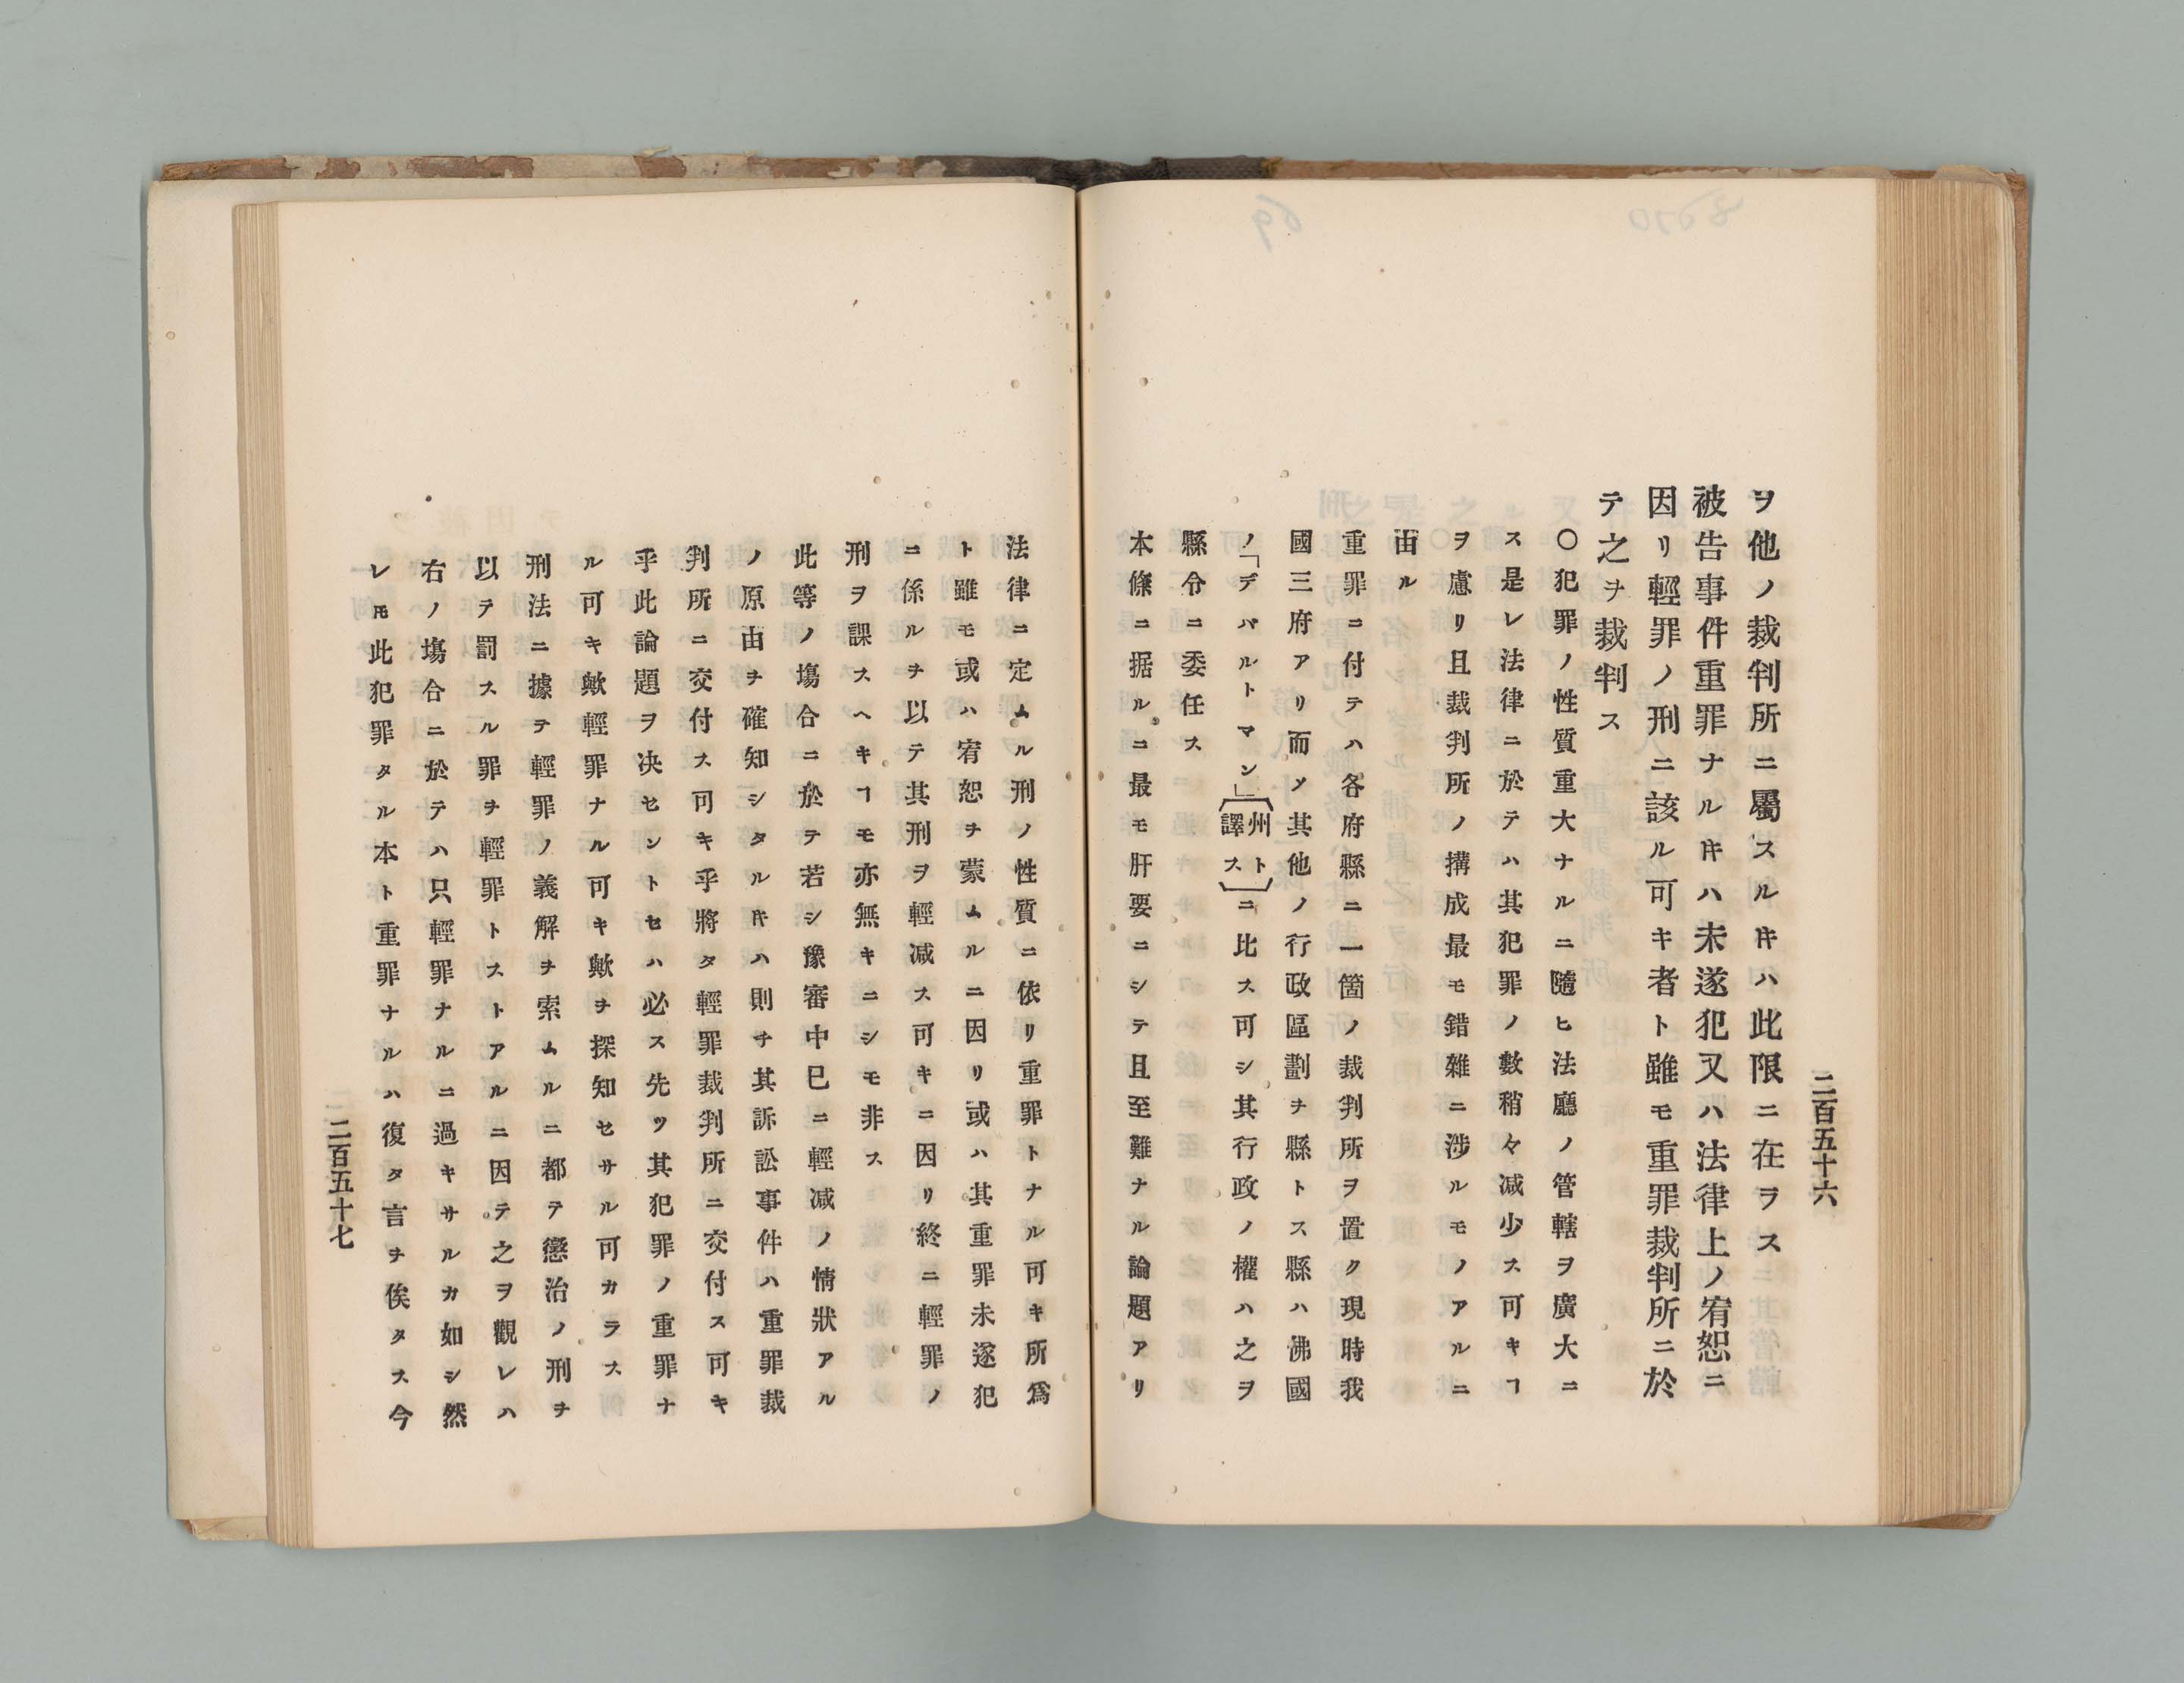 二百五十六
ヲ他ノ裁判所ニ屬スルキハ此限ニ在ヲス
被告事件重罪ナルキハ未遂犯又ハ法律上ノ宥恕ニ
因リ輕罪ノ刑ニ該ル可キ者ト雖モ重罪裁判所ニ於
テ之ヲ裁判ス
〇犯罪ノ性質重大ナルニ隨ヒ法廳ノ管轄ヲ廣大ニ
ス是レ法律ニ於テハ其犯罪ノ數稍々減少ス可キヿ
ヲ慮リ且裁判所ノ搆成最モ錯雜ニ渉ルモノアルニ
由ル
重罪ニ付テハ各府縣ニ一箇ノ裁判所ヲ置ク現時我
國三府アリ而メ其他ノ行政區劃ヲ縣トス縣ハ佛國
ノ「デパルトマン」〔州ト譯ス〕ニ比ス可シ其行政ノ權ハ之ヲ
縣令ニ委任ス
本條ニ据ルニ最モ肝要ニシテ且至難ナル論題アリ
法律ニ定ムル刑ノ性質ニ依リ重罪トナル可キ所爲
ト雖モ或ハ宥恕ヲ蒙ムルニ因リ或ハ其重罪未遂犯
ニ係ルヲ以テ其刑ヲ輕減ス可キニ因リ終ニ輕罪ノ
刑ヲ課スヘキヿモ亦無キニシモ非ス
此等ノ塲合ニ於テ若シ豫審中巳ニ輕減ノ情狀アル
ノ原由ヲ確知シタルキハ則チ其訴訟事件ハ重罪裁
判所ニ交付ス可キ乎將タ輕罪裁判所ニ交付ス可キ
乎此論題ヲ决セントセハ必ス先ツ其犯罪ノ重罪ナ
ル可キ歟輕罪ナル可キ歟ヲ探知セサル可カラス
刑法ニ據テ輕罪ノ義解ヲ索ムルニ都テ懲治ノ刑ヲ
以テ罰スル罪ヲ輕罪トストアルニ因テ之ヲ觀レハ
右ノ塲合ニ於テハ只輕罪ナルニ過キサルカ如シ然
レ𪜈此犯罪タル本ト重罪ナルハ復タ言ヲ俟タス今
二百五十七